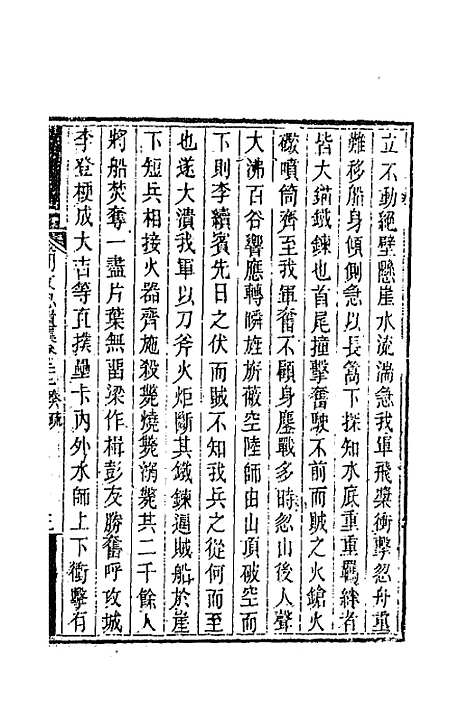 立不動絕壁懸崖水流湍急我軍飛槳衝擊忽舟重
難移船身傾側急以長篙下探知水底重重羈絆者
皆大錨鐵鍊也首尾撞擊奮駛不前而賊之火鎗火
礮噴筒齊至我軍奮不顧身鏖戰多時忽山後人聲
大沸百谷響應轉瞬旌旂蔽空陸師由山頂破空而
下則李續賓先日之伏而賊不知我兵之從何而至
也遂大潰我軍以刀斧火炬斷其鐵鍊逼賊船於崖
下短兵相接火器齊施殺斃燒斃溺斃其二千餘人
將船焚奪一盡片葉無留梁作楫彭友勝奮呼攻城
李登梗成大吉等直撲壘卡內外水師上下衝擊有